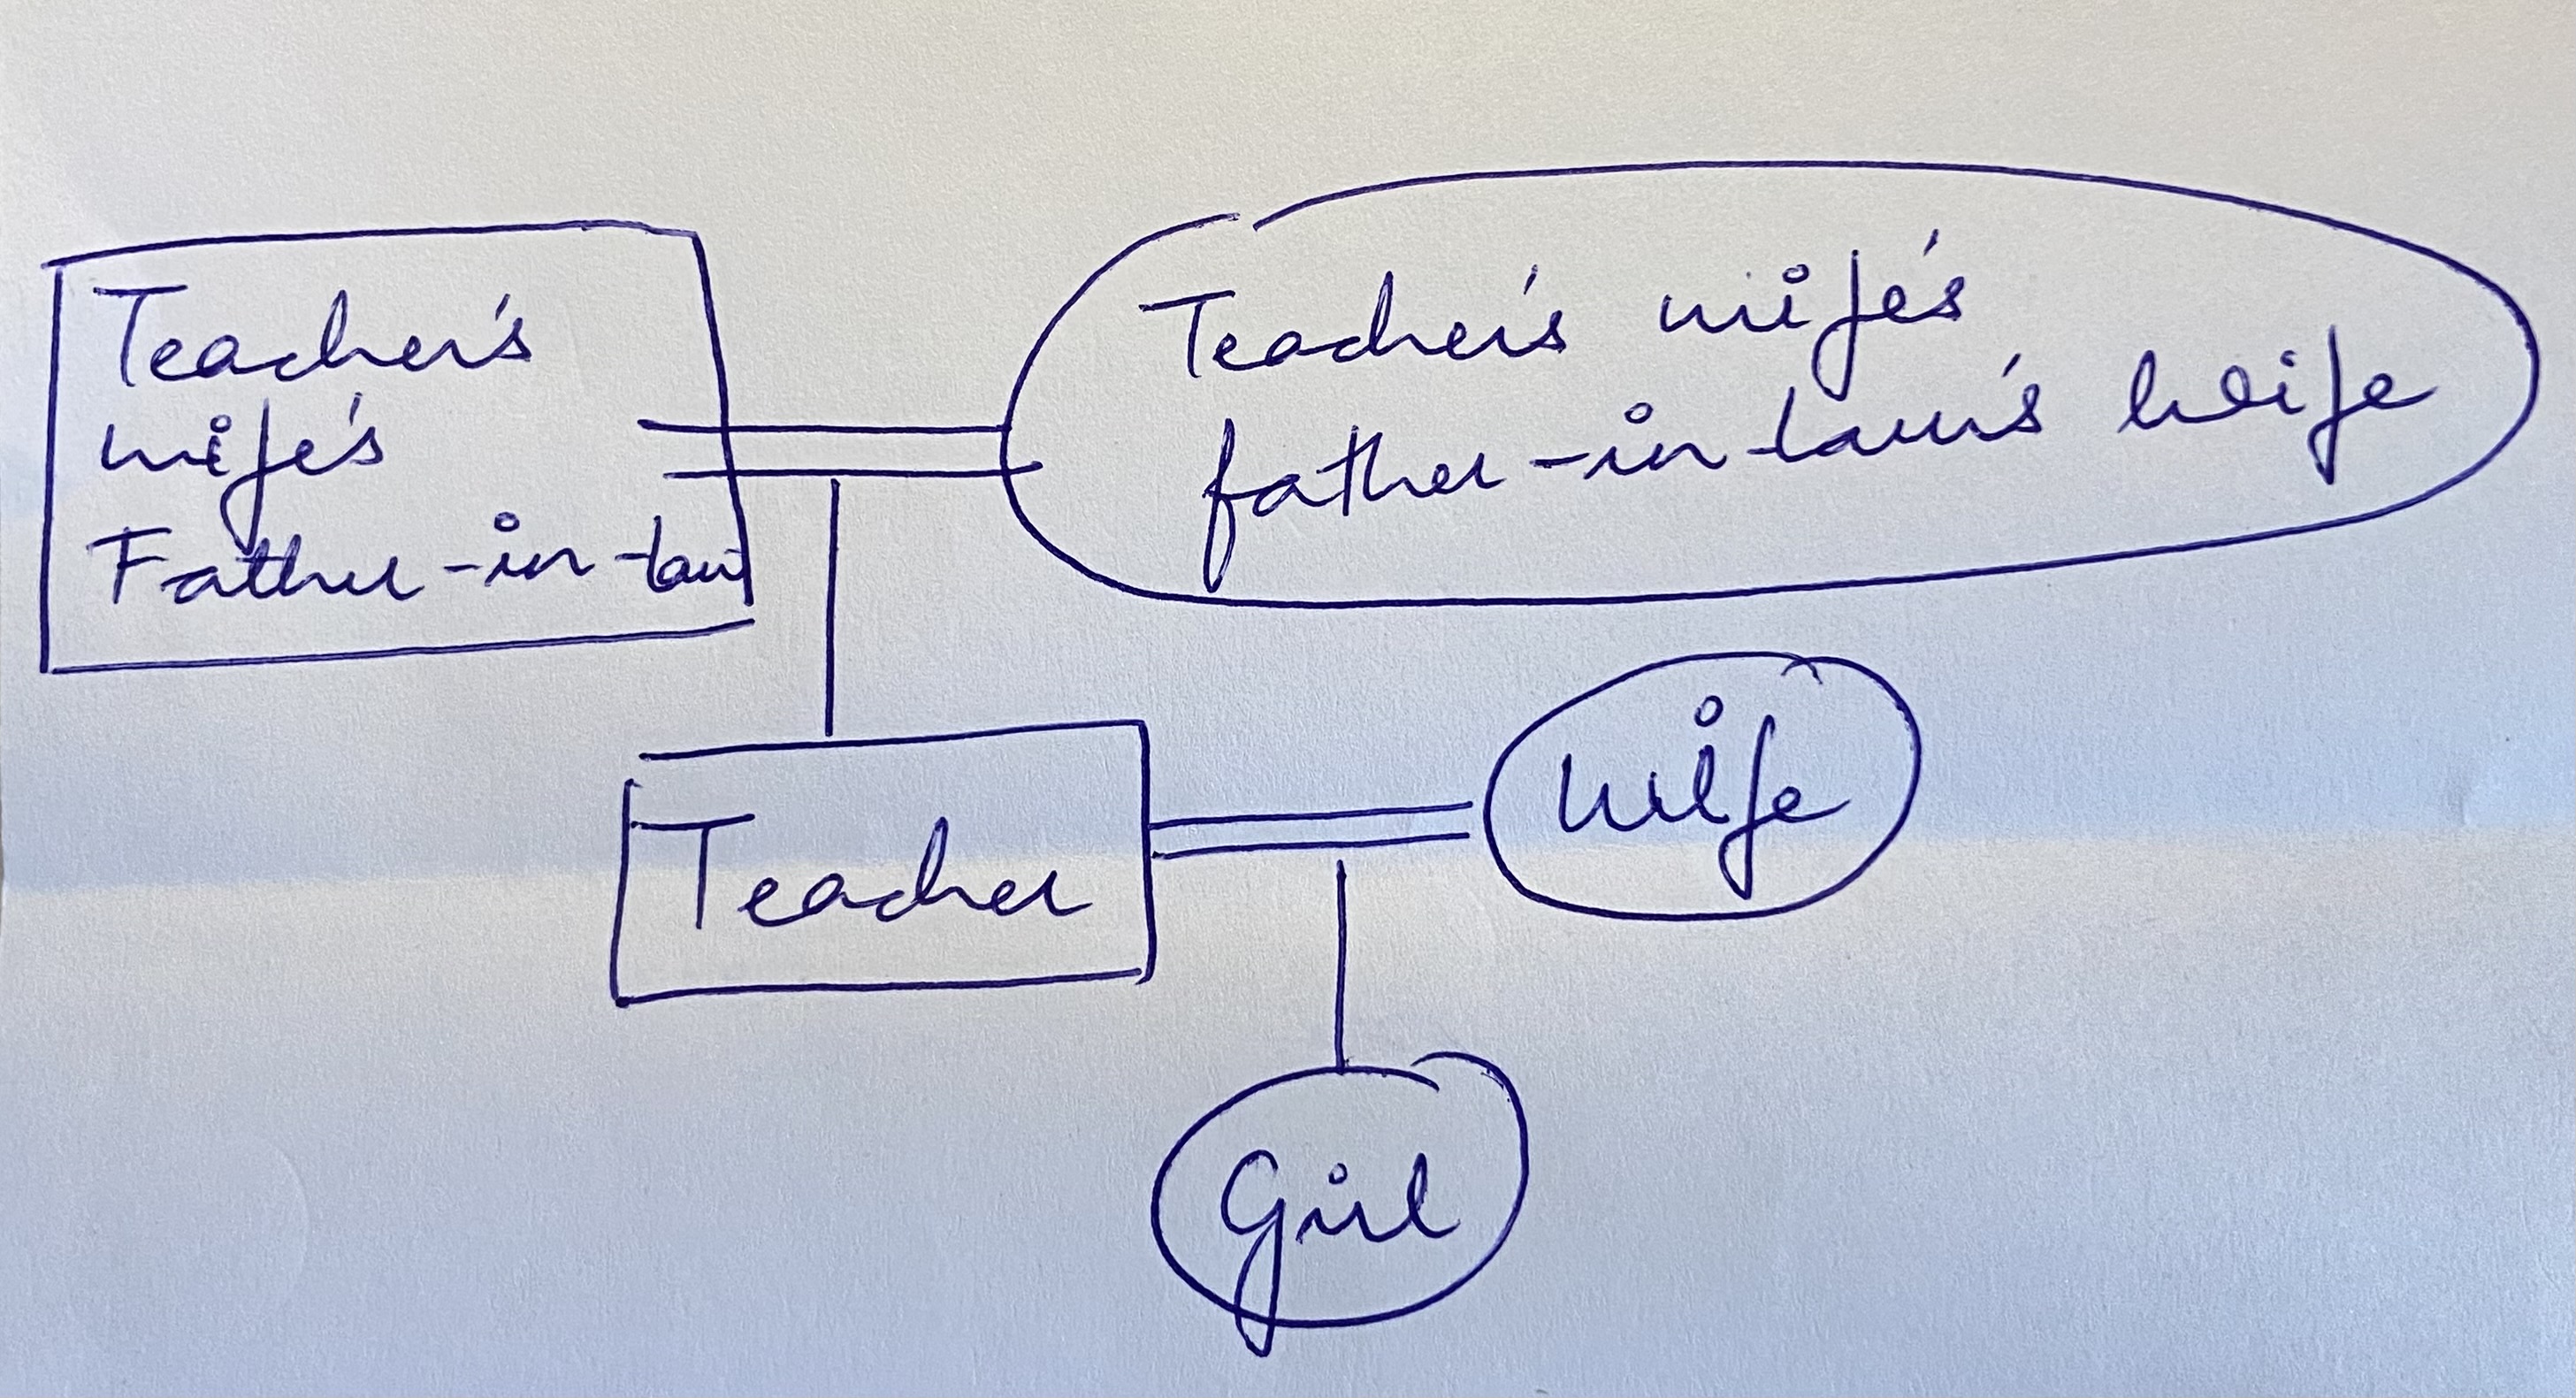 Teacher's
wife's
Father-in-law
Teacher's wife's
father-in-law's wife
Teacher
wife
Girl